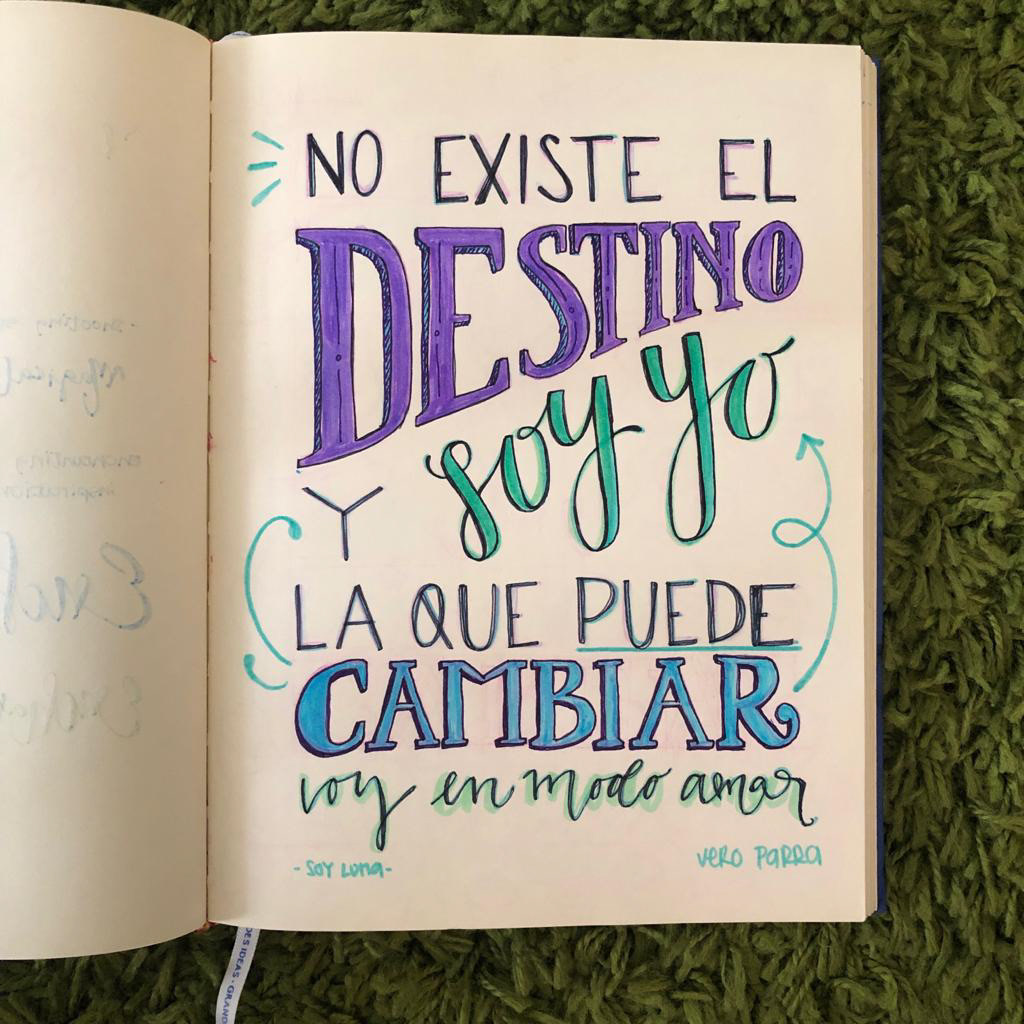 NO EXISTE EL
DESTINO
soy yo
Y
LA QUE PUEDE
CAMBIAR
voy en modo amar
- SOY LUNA -
VERO PARRA
DES IDEAS · GRAND